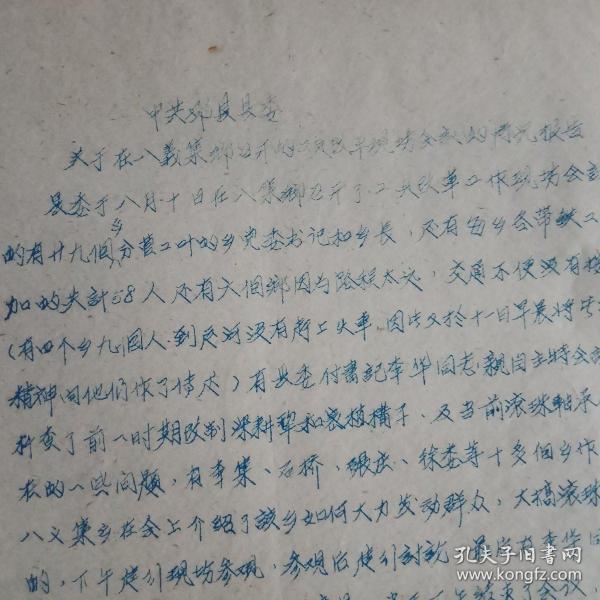 中共邳县县委
关于在八義集鄉召开的工具改革現場会議的情况报告
县委于八月十日在八集鄉召开了工具改革工作現場会議
的有廿九個乡分管工业的乡党委书记和乡长，还有每乡各带铁工
加的共計58人还有六個鄉因为路程太远，交通不便没有
(有四个乡九個人到反河没有赶上火車，因此又於十一日早晨将
精神向他们作了传达)有县委付書記李华同志親自主持会
检查了前一时期改制深耕犁和安植耩子、及当前滚珠軸承
在的一些问题，有李集、石桥、碾庄、徐娄等十多個乡作
八义集乡在会上介绍了該乡如何大力发动群众，大搞滚珠
的，下午進行現场参观，参观后進行討論，最后有李华同
孔夫子旧书网
www.kongfz.com